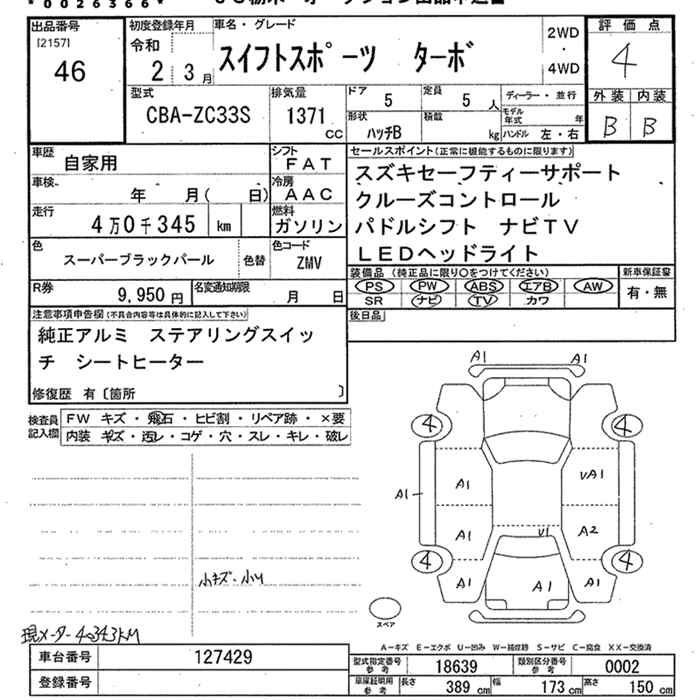 *0026366*
出品番号
[2157]
46
初度登録年月
令和
2 3月
車名・グレード
スイフトスポーツ ターボ
2WD
・
4WD
評価点
4
外装 内装
B B
型式
CBA-ZC33S
排気量
1371
CC
ドア
5
定員
5 人
ディーラー・並行
形状
ハッチB
積載
kg
モデル
年式
年
ハンドル 左・右
車歴
自家用
シフト
FAT
車検
年 月( 日)
冷房
AAC
走行
4万0千345 km
燃料
ガソリン
色
スーパーブラックパール
色替
色コード
ZMV
R券
9,950円
名変通知期限
月 日
セールスポイント(正常に機能するものに限ります)
スズキセーフティーサポート
クルーズコントロール
パドルシフト ナビTV
LEDヘッドライト
装備品 (純正品に限り○をつけてください)
PS PW ABS エアB AW
SR ナビ TV カワ
新車保証書
有・無
後日品
注意事項申告欄(不具合内容等は具体的に記入して下さい)
純正アルミ ステアリングスイッ
チ シートヒーター
修復歴 有〔箇所 〕
検査員
記入欄
FW キズ・飛石・ヒビ割・リペア跡・×要
内装 キズ・汚レ・コゲ・穴・スレ・キレ・破レ
小キズ・小凹
現メーター 40343KM
A1
A1
4
4
A1
A1
VA1
A1
V1
A2
4
4
A1
A1
A1
スペア
A−キズ E−エクボ U−凹み W−補修跡 S−サビ C−腐食 XX−交換済
車台番号
127429
登録番号
型式指定番号
参考
18639
類別区分番号
参考
0002
車庫証明用
参考
長さ
389 cm
幅
173 cm
高さ
150 cm